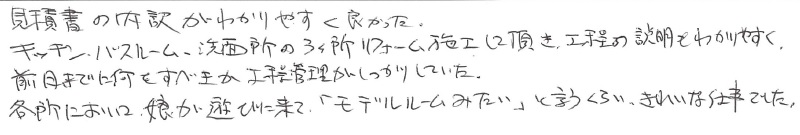 見積書の内訳がわかりやすく良かった。
キッチン、バスルーム、洗面所の3ヶ所リフォーム施工して頂き、工程の説明もわかりやすく、
前日までに何をすべきか工程管理がしっかりしていた。
各所において、娘が遊びに来て、「モデルルームみたい」と言うくらい、きれいな仕事でした。